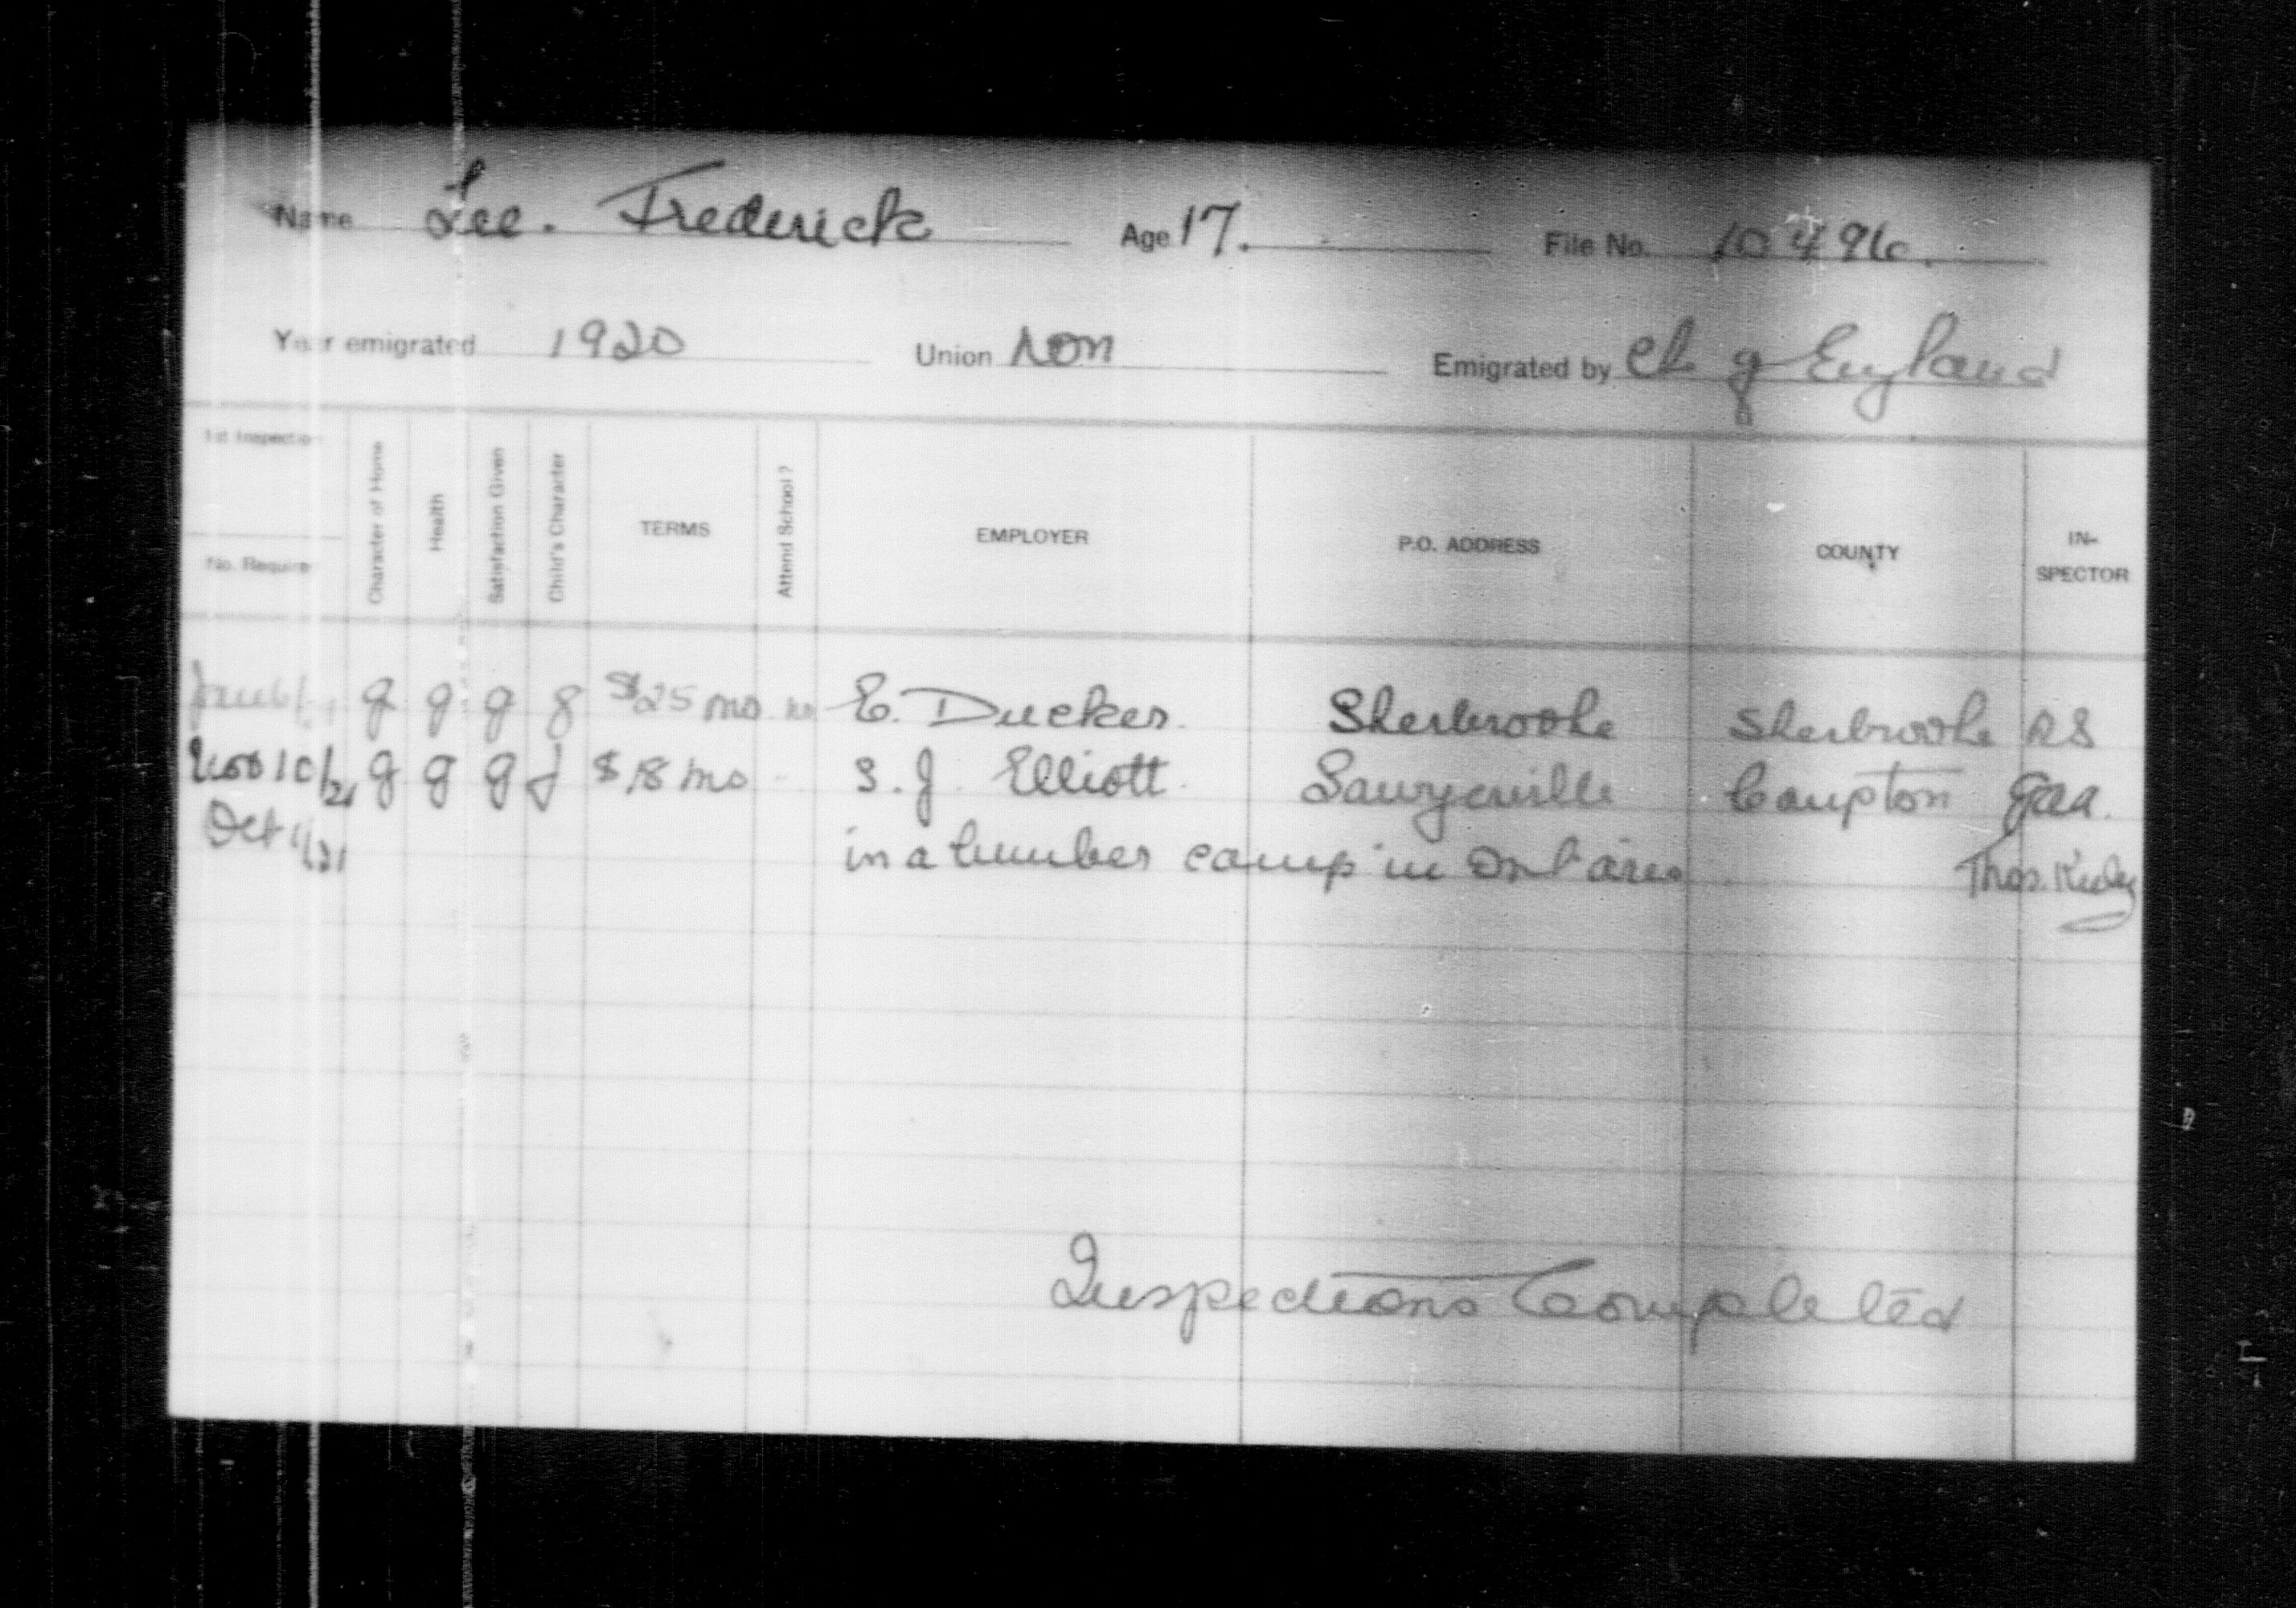 Name Lee. Frederick Age 17. File No. 10496.
Year emigrated 1920 Union Non Emigrated by Ch of England
1st Inspection
No. Require
Character of Home
Health
Satisfaction Given
Child's Character
TERMS
Attend School?
EMPLOYER
P.O. ADDRESS
COUNTY
IN-SPECTOR
g g g g $25 mo no E. Ducker Sherbrooke Sherbrooke RS
10/21 g g g g $18 mo - S. J. Elliott Sawyerville Compton GAA.
Oct 1/21 in a lumber camp in Ontario Thos.
Inspections Completed